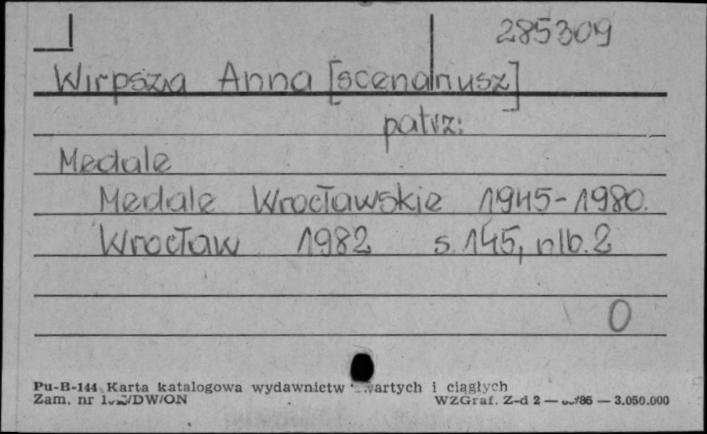 285309
Wirpsza Anna [scenariusz]
patrz:
Medale
Medale Wrocławskie 1945-1980.
Wrocław 1982 s. 145, nlb. 2
0
Pu-B-144 Karta katalogowa wydawnictw i ciągłych
Zam. nr WZGraf. Z-d 2 — — 3.050.000